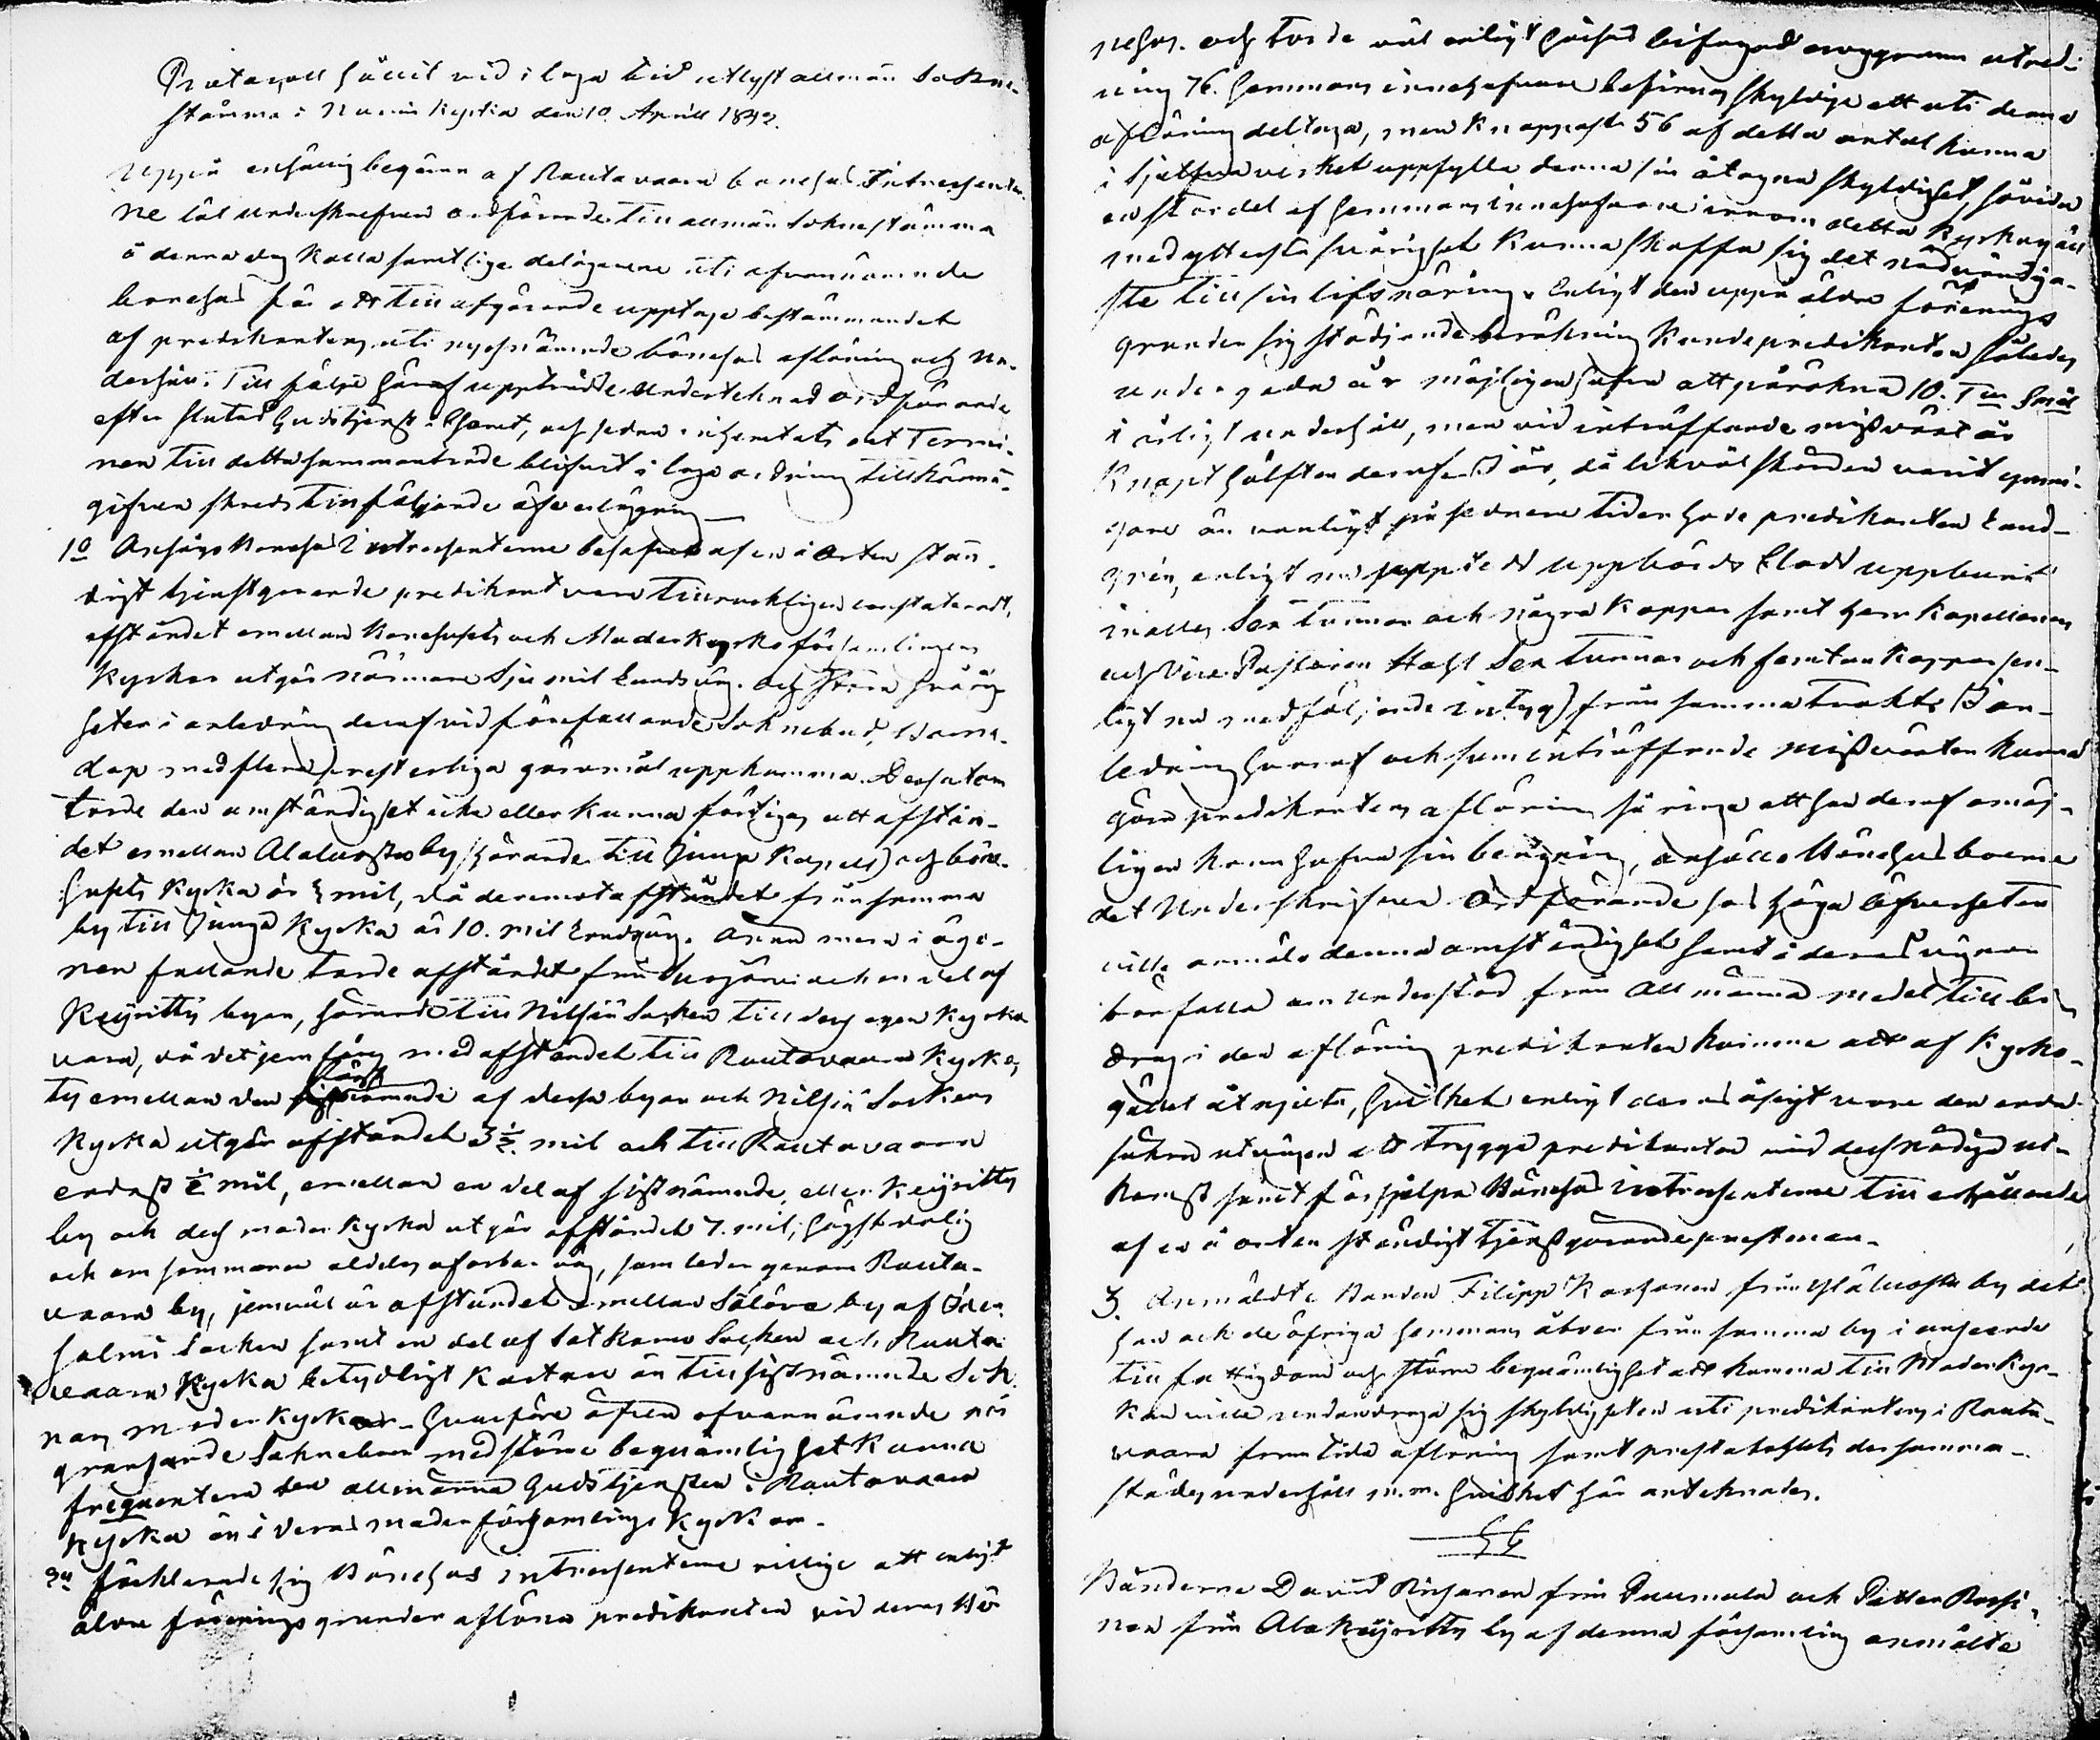 Protocoll hållit vid i laga tid utlyst allmän Sockne-
stämma i Nurmis Kyrka den 10 Aprill 1842.
Uppå enhällig begäran af Rautavaara bönehus Intressenter-
ne lät underskrefven ordförande till allmän Soknestämma
å denna dag kalla samtlige delägarene uti ofvannämnde
bönehus för att till afgörande upptaga bestämmandet
af predikantens uti nyssnämnde bönehus aflöning och un-
derhåll. Till följe häraf uppträdde Undertecknad ordförande
efter slutad Gudstjenst, och sedan inhemtats att Termi-
nen till detta sammanträde blifvit i laga ordning tillkänna-
gifven skreds till följande öfverläggning
1o Ansågo Bönehus Intressenterne behofvet af en i Orten stän-
digt tjenstgörande predikant vara tillräckligen constateradt,
afståndet emellan Bönehusets och Moderkyrkoförsamlingens
Kyrkor utgör närmare Sju mil Landsväg. och stora svårig-
heter i anledning deraf vid förefallande Soknebud, Barna-
dop med flera presterliga göromål uppkomma. Dessutom
torde den omständighet icke eller kunna förtigas att afstån-
det emellan Alaluosta by (hörande till Juuga Kapell) och böne-
husets Kyrka är ½ mil, då deremot afståndet från samma
by till Juuga Kyrka är 10. mil Landsväg. Ännu mera i ögo-
nen fallande torde afståndet från och en del af
Keyritty byar, hörande till Nilsiä Socken till dess egen Kyrka
vara, då det jemföres med afståndet till Rautavaara Kyrka,
ty emellan den först nämnde af dessa byar och Nilsiä Sockens
Kyrka utgör afståndet 3½. mil och till Rautavaara
endast ½ mil, emellan en del af sistnämnde, eller Keyritty
by och dess moder Kyrka utgör afståndet 7. mil, högst dålig
och om sommaren alldeles ofarbar väg, som leder genom Rauta-
vaara by, jemväl är afståndet emellan Sälövä by af Iden-
salmi Socken samt en del af Sotkamo Socken och Rauta-
vaara Kyrka betydligt kortare än till sistnämnde Sok-
nars moder Kyrkor - hvarföre äfven ofvannämnde när
gränsande Soknebor med större beqvämlighet kunna
frequentera den allmänna Gudstjensten i Rautavaara
Kyrka än i deras moderförsamlings Kyrkor.
2o förklarade sig Bönehus intressenterne villige att enligt
äldre förenings grunder aflöna predikanten vid deras Bö-
nehus. och torde väl enligt härhos bifogad noggrann utred-
ning 76. hemmans innehafvare befinnas skyldige att uti denna
aflöning deltaga, men knappast 56 af detta antal kunna
i sjelfva verket uppfylla denna sin åtagna skyldighet, såvida
en stor del af hemmans innehafvarne innom detta Kyrkogäll
med yttersta svårighet kunna skaffa sig det nödvändiga-
ste till sin lifsnäring. Enligt den uppå äldre förenings
grunder sig stödjande beräkning kunde predikanten således
under goda år möjligen hafva att påräkna 10. Tnr Spml
i årligt underhåll, men vid inträffande missväxt är
knapt hälften deraf. I år, då likväl skörden varit ymni-
gare än vanligt på sednare tider hade predikanten Land-
grén, enligt nu uppstedd uppbörds Eladd uppburit
inalles Sex tunnor och några kappar samt herr Kapellanen
och Vice Pastoren Stahl Sex Tunnor och femton kappar (en-
ligt nu medföljande intyg) från samma trakt. I an-
ledning hvaraf och som inträffande missväxter kunna
göra predikantens aflöning så ringa att han deraf omöj-
ligen kunn hafva sin bergning, anhöllo Bönehusboerne
det Underskrifven Ordförande hos höga Öfverheten
ville anmäla denna omständighet samt i deras vägnar
bönfalla om understöd från Allmänna medel till bi-
drag i den aflöning predikanten kommer att af Kyrko-
gället åtnjuta, hvilket enligt deras åsigt vore den enda
säkra utvägen att trygga predikanten vid dess nödiga ut-
komst samt förhjelpa Bönehus intressenterne till erhållande
af en å orten ständigt tjenstgörande prestman.
3 Anmäldte Bonden Filipp Korhonen från Ylä luosta by det
han och de öfriga hemmans åboer från samma by i anseende
till fattigdom och större beqvämlighet att komma till Moder Kyr-
kan ville undandraga sig skyldigheten uti predikantens i Rauta-
vaara framtida aflöning samt prestabohlets dersamma-
städes underhåll m.m. hvilket här antecknades.
§§
Bönderne David Ryhänen från Puumala och Petter Rossi-
nen från Ala Keyritty by af denna församling anmälte